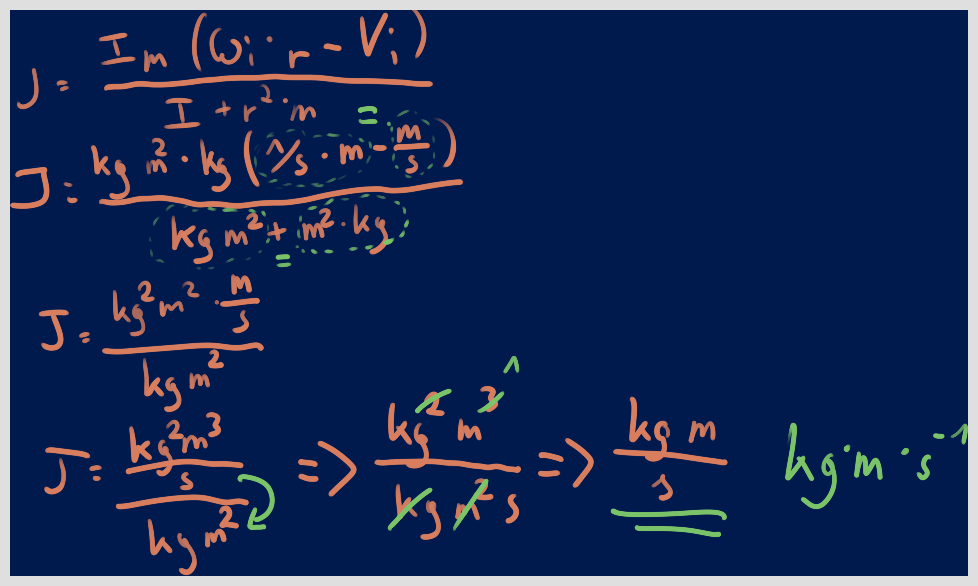 J = I m (ωi · r - Vi) / I + r²·m
J = kg m² · kg (1/s · m - m/s) / kg m² + m² · kg
= =
J = kg² m² · m/s / kg m²
J = kg² m³ / s / kg m² => kg² m³ 1 / kg m² s => kg m / s kg·m·s⁻¹